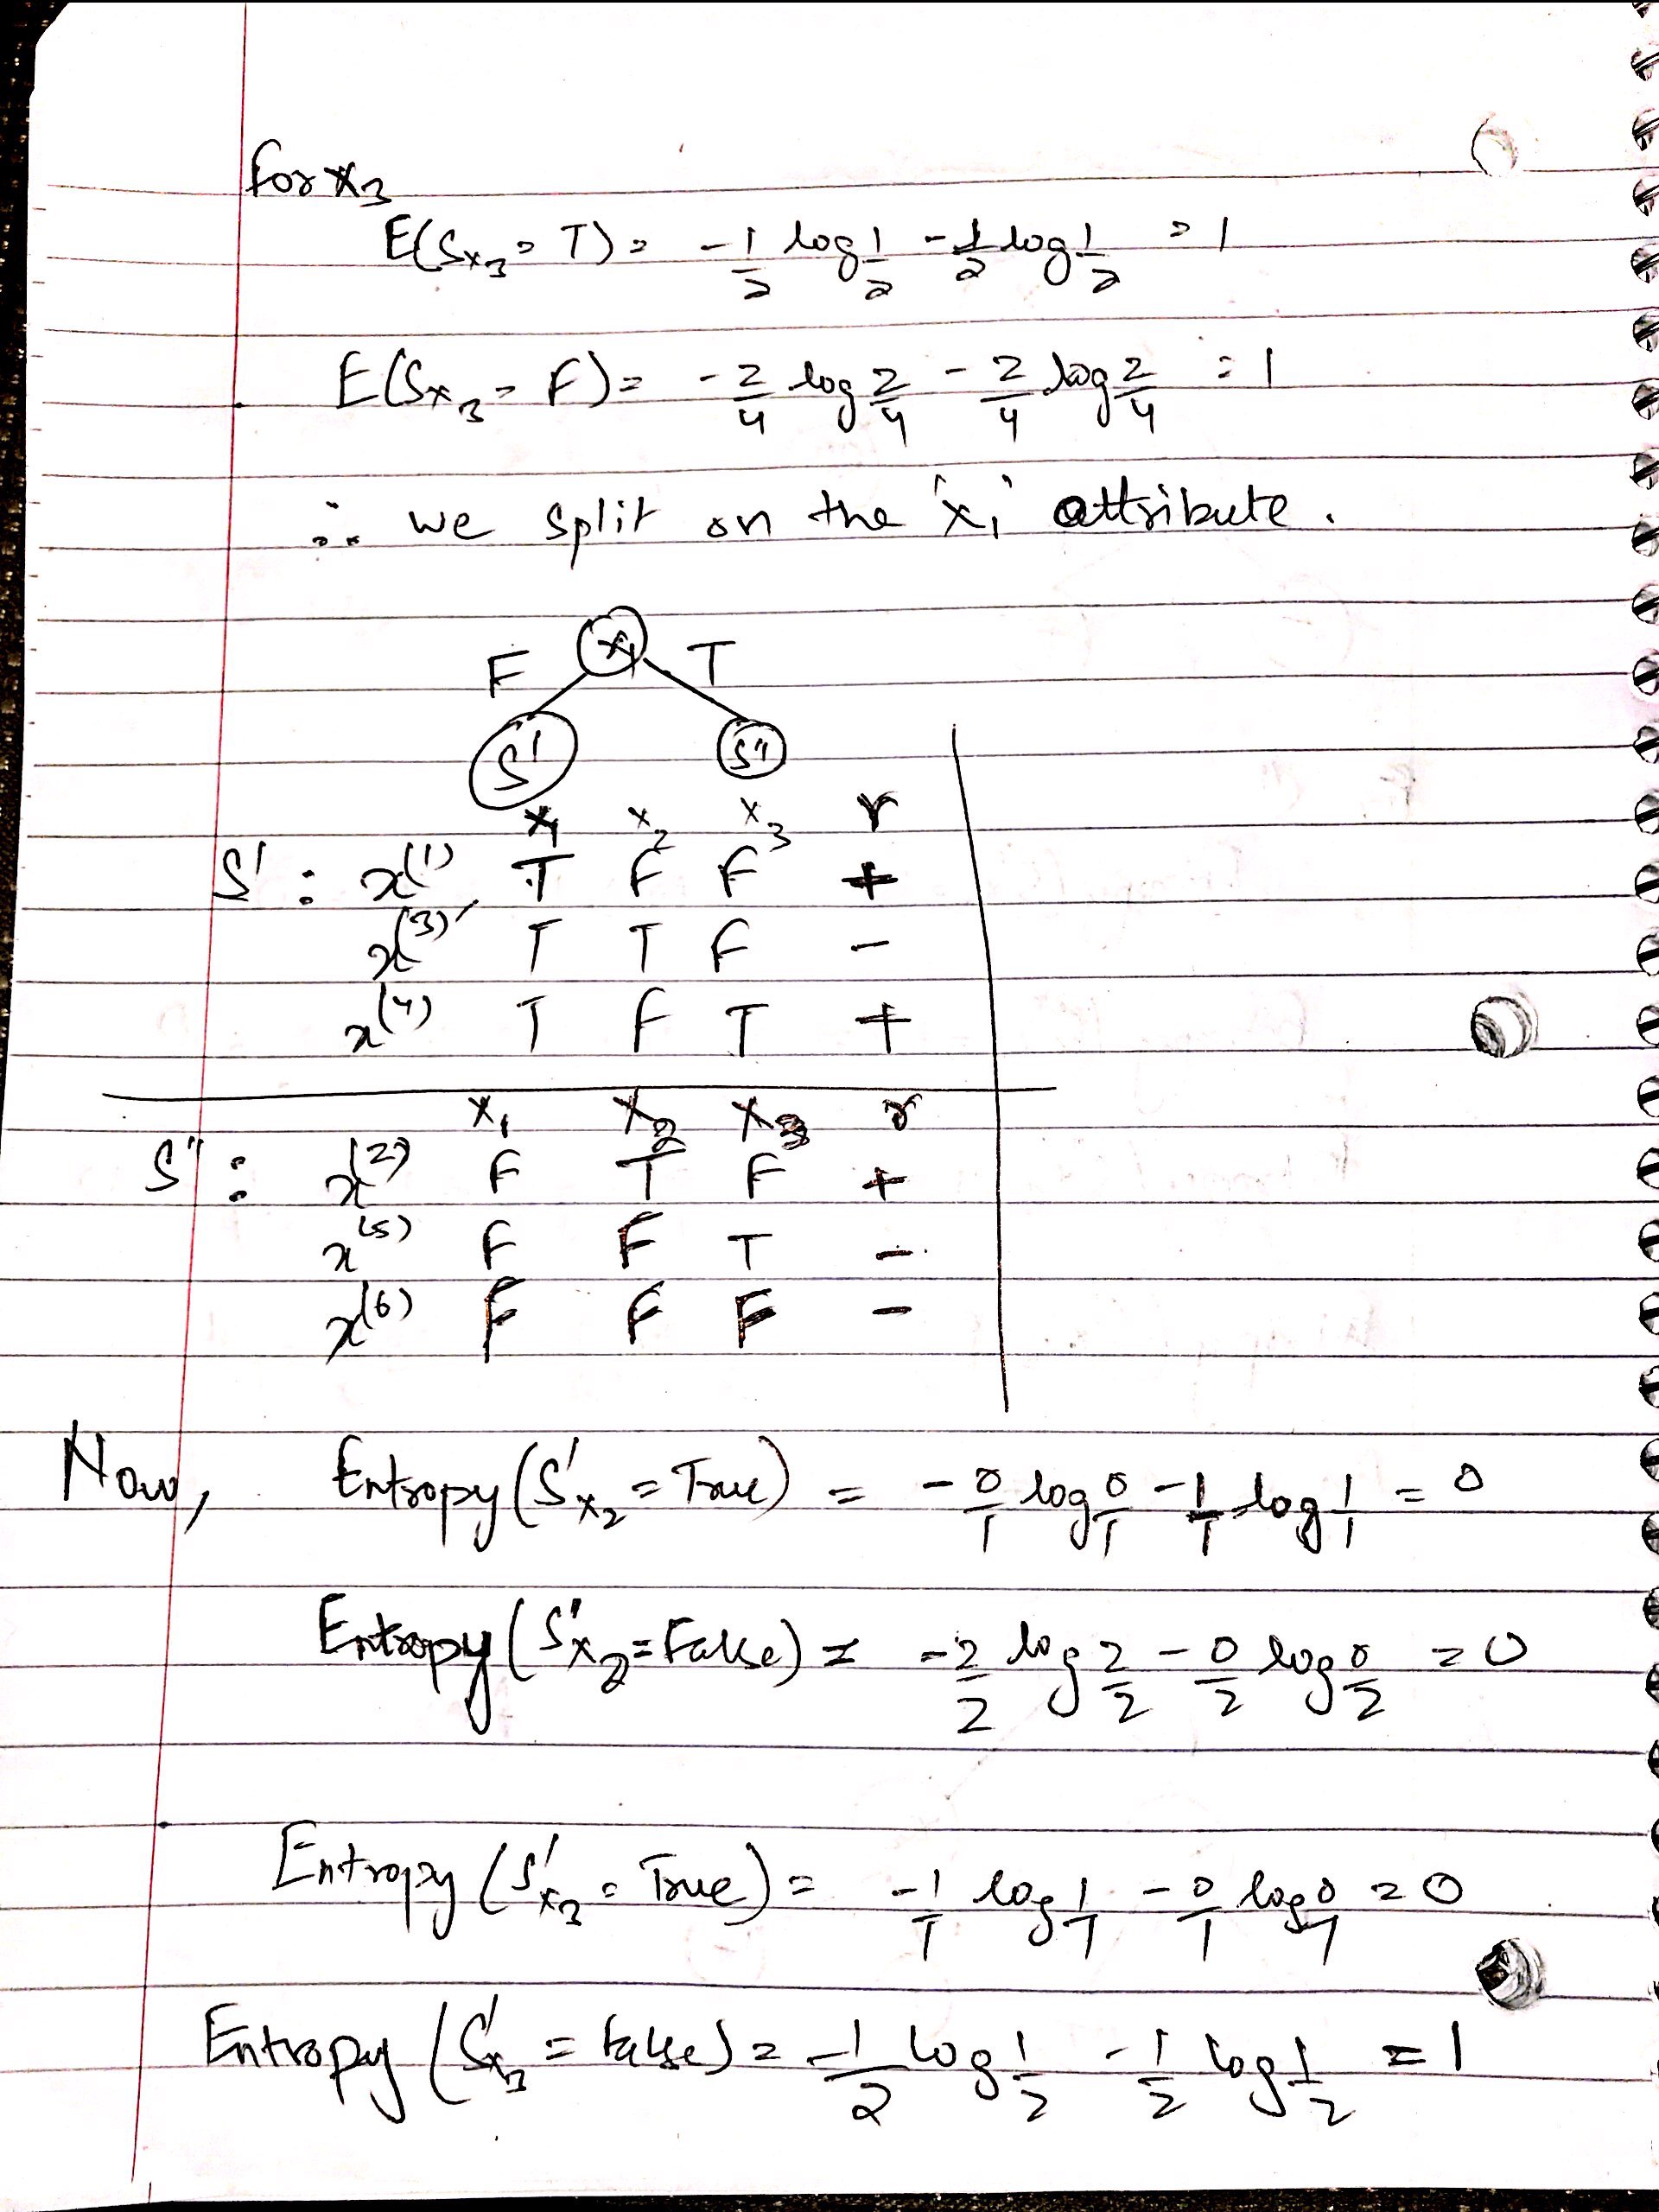 for x₃
E(Sx₃ = T) = -1/2 log 1/2 - 1/2 log 1/2 = 1
E(Sx₃ = F) = -2/4 log 2/4 - 2/4 log 2/4 = 1
∴ we split on the 'x₁' attribute.
x₁
F T
S' S"
x₁ x₂ x₃ r
S' : x⁽¹⁾ T F F +
x⁽³⁾ T T F -
x⁽⁴⁾ T F T +
x₁ x₂ x₃ r
S" : x⁽²⁾ F T F +
x⁽⁵⁾ F F T -
x⁽⁶⁾ F F F -
Now, Entropy (S'x₂ = True) = -0/1 log 0/1 - 1/1 log 1/1 = 0
Entropy (S'x₂ = False) = -2/2 log 2/2 - 0/2 log 0/2 = 0
Entropy (S'x₃ = True) = -1/1 log 1/1 - 0/1 log 0/1 = 0
Entropy (S'x₃ = false) = -1/2 log 1/2 - 1/2 log 1/2 = 1